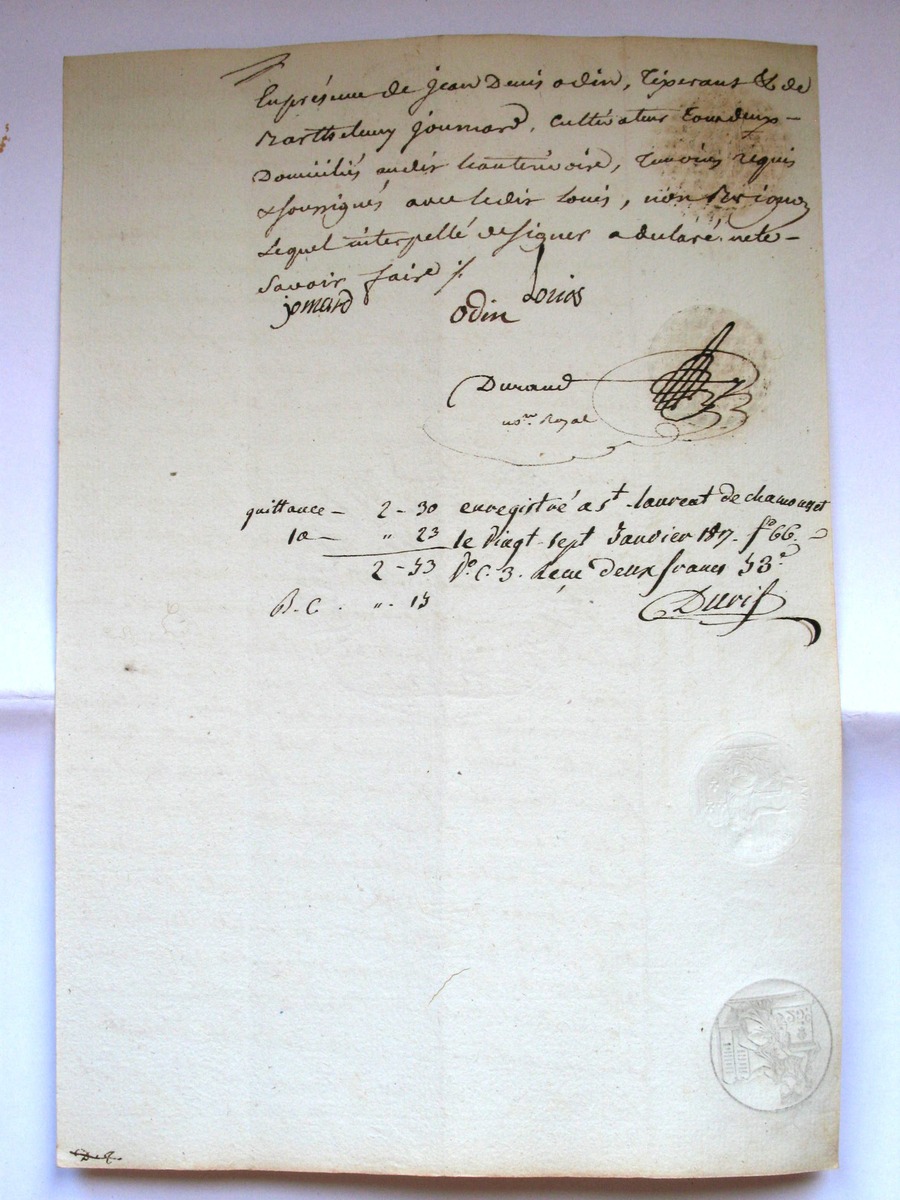 En présence de jean Denis odin, Tisserant & de
Barthelemy joumard, Cultivateur Tous deux
Domiciliés audit hauterivoire, Temoins requis
& soussignés avec ledit Louis, non
Lequel interpellé de signer a declaré ne le
Savoir faire ./.
jomard odin Louis
Durand
no.re Royal
quittance — 2 - 30 enregistré a St laurent de chamousset
10— " 23 le Vingt-sept Janvier 1817. fo 66.
2 - 53 Vo C. 3. Reçu deux francs 53 c
B. C. ". 15